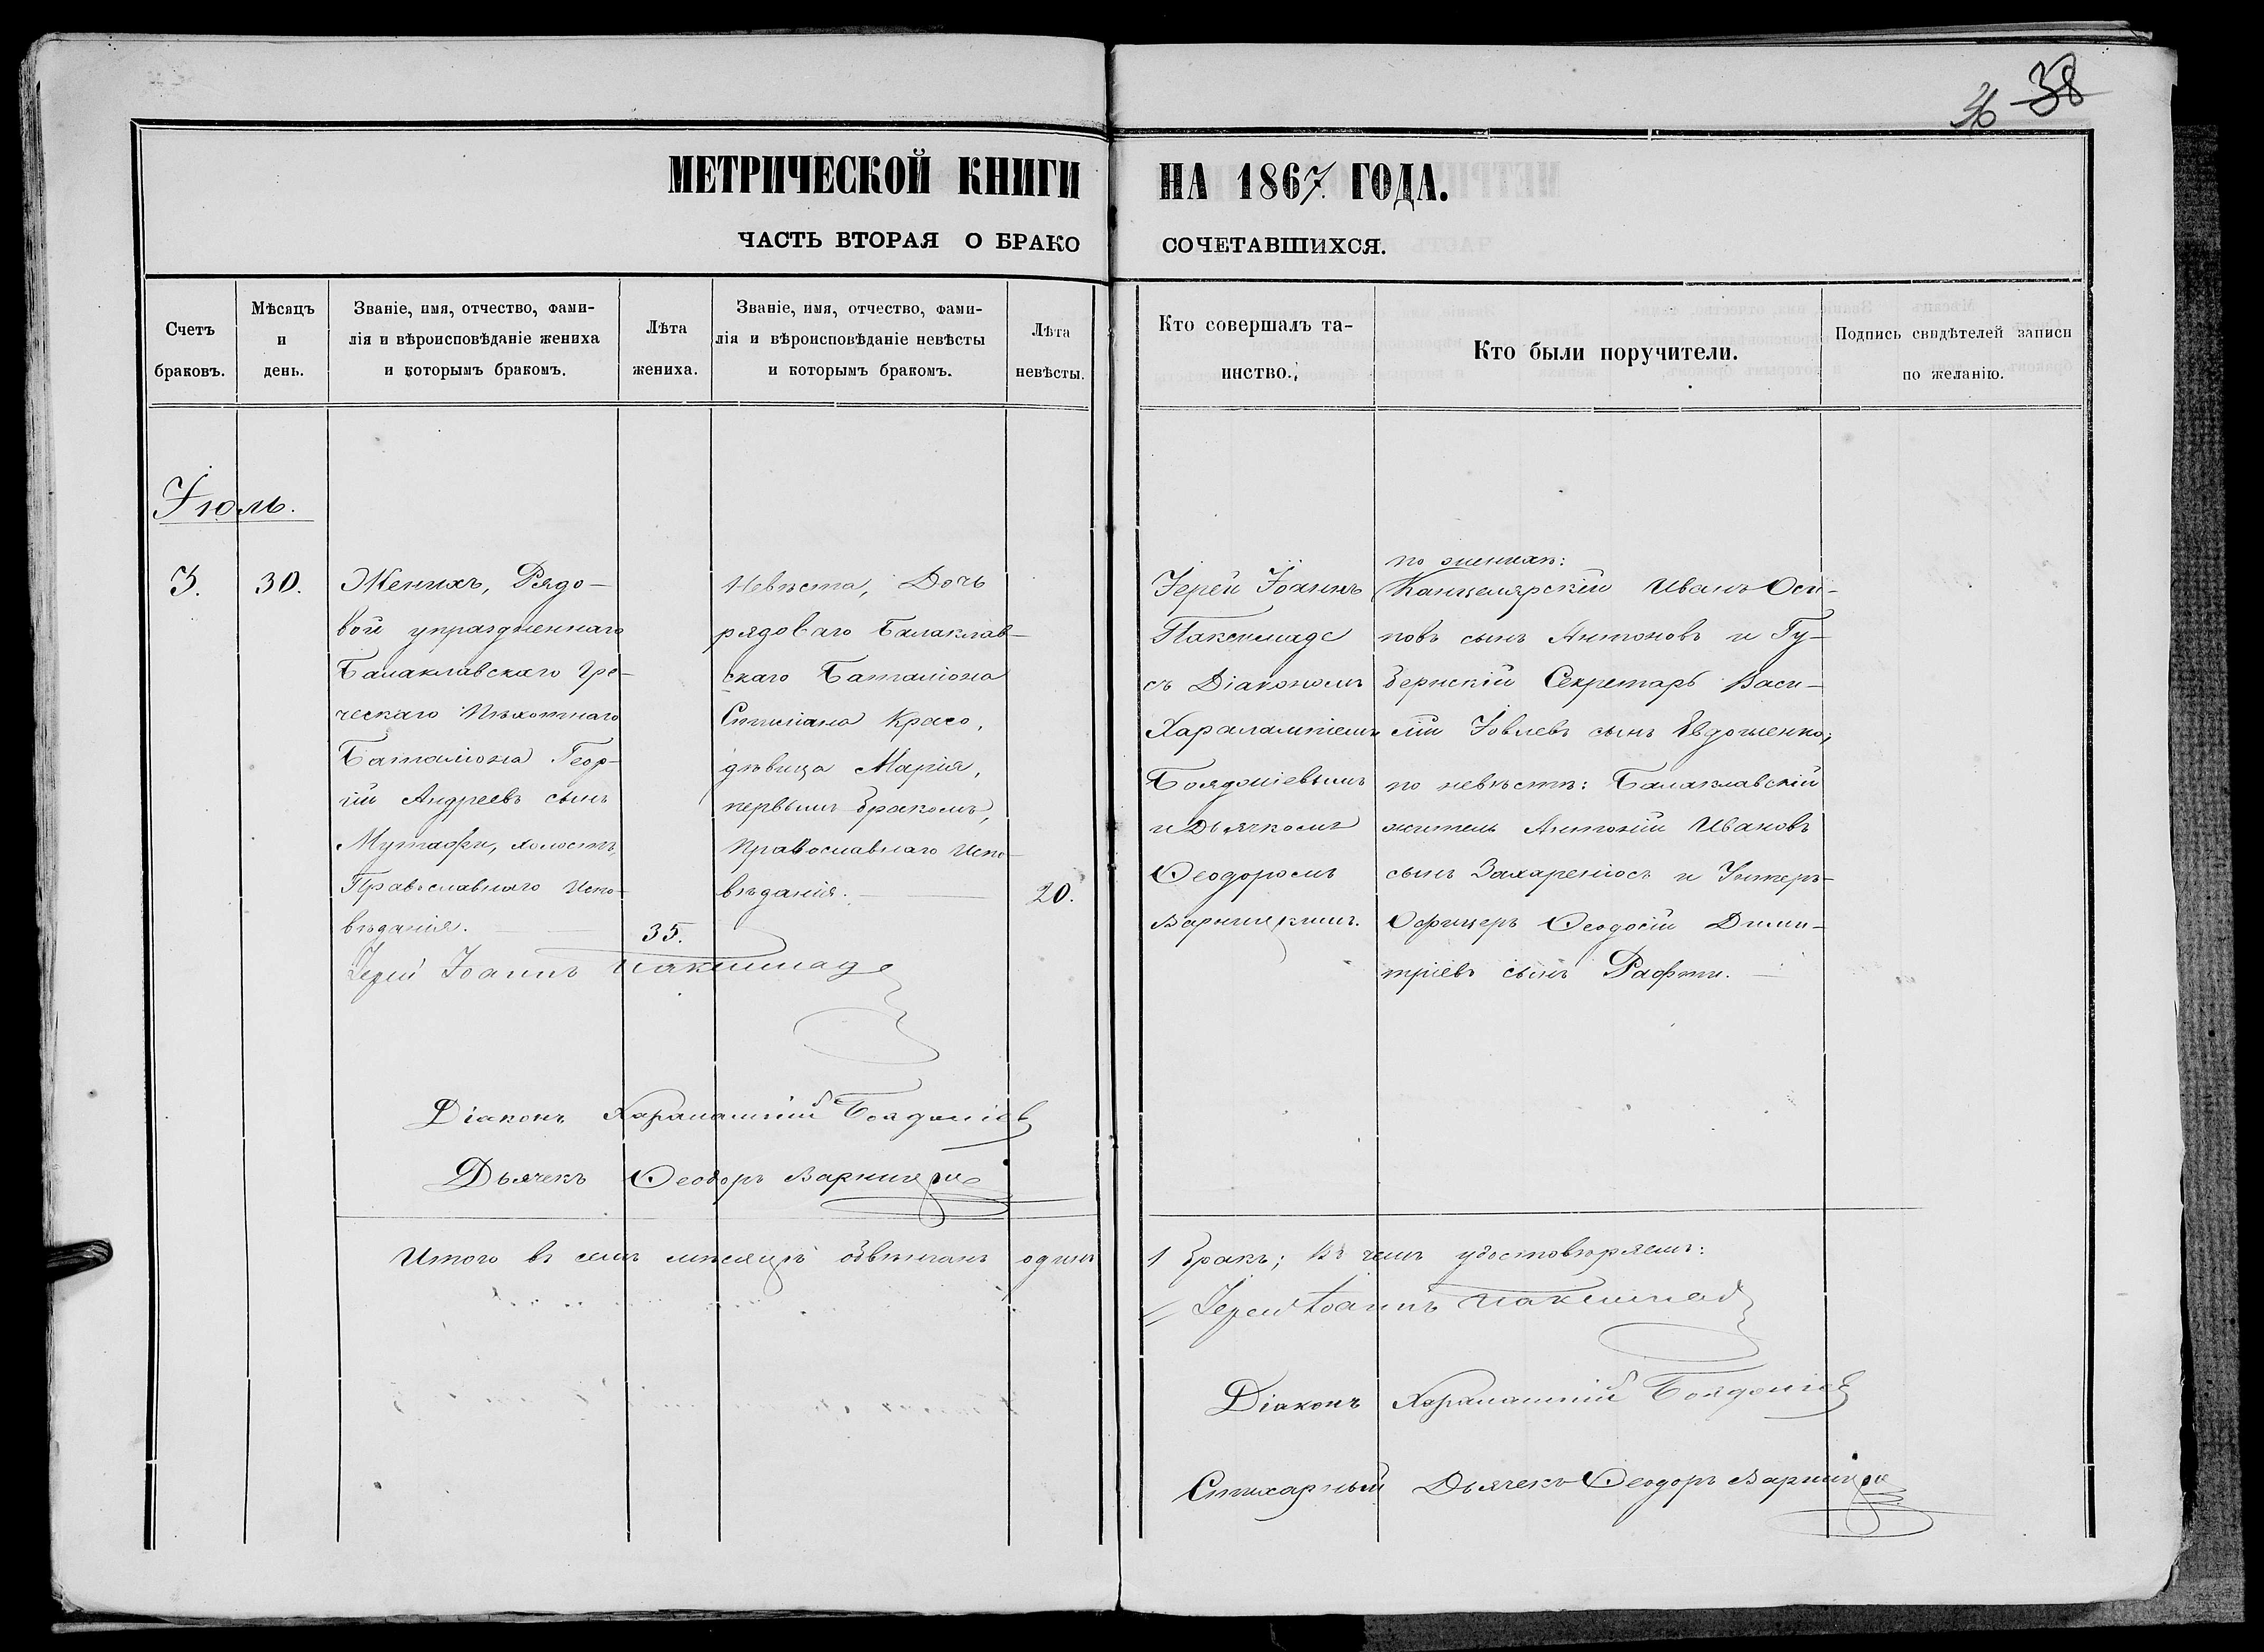 36 38
МЕТРИЧЕСКОЙ КНИГИ НА 1867 ГОДА.
ЧАСТЬ ВТОРАЯ О БРАКО СОЧЕТАВШИХСЯ.
Счетъ
браковъ.
Мѣсяцъ
и
день.
Званіе, имя, отчество, фами-
лія и вѣроисповѣданіе жениха
и которымъ бракомъ.
Лѣта
жениха.
Званіе, имя, отчество, фами-
лія и вѣроисповѣданіе невѣсты
и которымъ бракомъ.
Лѣта
невѣсты.
Кто совершалъ та-
инство.
Кто были поручители.
Подпись свидѣтелей записи
по желанію.
Іюль.
3.
30.
Женихъ, Рядо-
вой упраздненнаго
Балаклавскаго Гре-
ческаго Пѣхотнаго
Баталіона Геор-
гій Андреевъ сынъ
Мутафи, холостъ,
Православнаго Испо-
вѣданія.
35.
Невѣста, Дочь
рядоваго Балаклав-
скаго Баталіона
Стиліана Красо,
дѣвица Марія,
первымъ бракомъ,
Православнаго Испо-
вѣданія.
20.
Іерей Іоаннъ
Паксимаде
съ Діакономъ
Харалампіемъ
Бояджіевымъ
и Дьячкомъ
Ѳеодоромъ
Варницкимъ.
по женихѣ:
Канцелярскій Иванъ Оси-
повъ сынъ Антоновъ и Гу-
бернскій Секретарь Васи-
лій Іовлевъ сынъ Евдошенко;
по невѣстѣ: Балаклавскій
житель Антоній Ивановъ
сынъ Захареніосъ и Унтеръ-
Офицеръ Ѳеодосій Дими-
тріевъ сынъ Рафти.
Іерей Іоаннъ Паксимаде
Діаконъ Харалампій Бояджіев
Дьячекъ Ѳеодоръ Варницкій
Итого въ семъ мѣсяцѣ обвѣнчанъ одинъ 1 бракъ; въ чемъ удостовѣряемъ:
Іерей Іоаннъ Паксимаде
Діаконъ Харалампій Бояджіев
Стихарный Дьячекъ Ѳеодоръ Варницкій